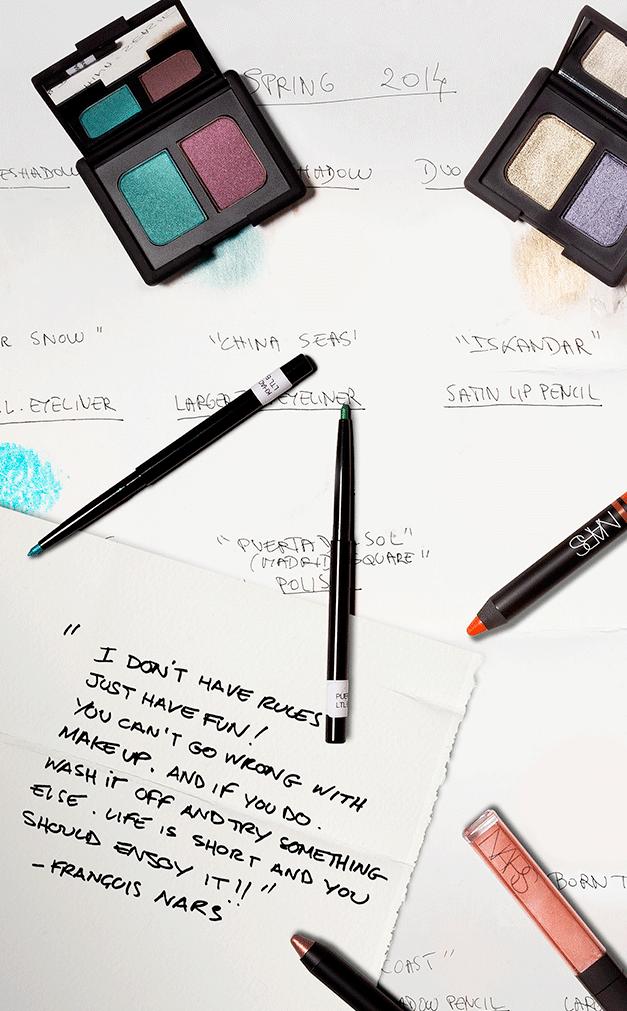 SPRING 2014
ESHADOW
HADOW
DUO
R SNOW"
"CHINA SEAS'
"ISKANDAR"
L. EYELINER
LARGE EYELINER
SATIN LIP PENCIL
"PUERTA D SOL"
(MADRID SQUARE"
POLIS
NARS
"I DON'T HAVE RULES
JUST HAVE FUN!
YOU CAN'T GO WRONG WITH
MAKEUP. AND IF YOU DO.
WASH IT OFF AND TRY SOMETHING
ELSE. LIFE IS SHORT AND YOU
SHOULD ENJOY IT!!"
- FRANÇOIS NARS
NARS
BORN T
COAST"
ADOW PENCIL
LAR